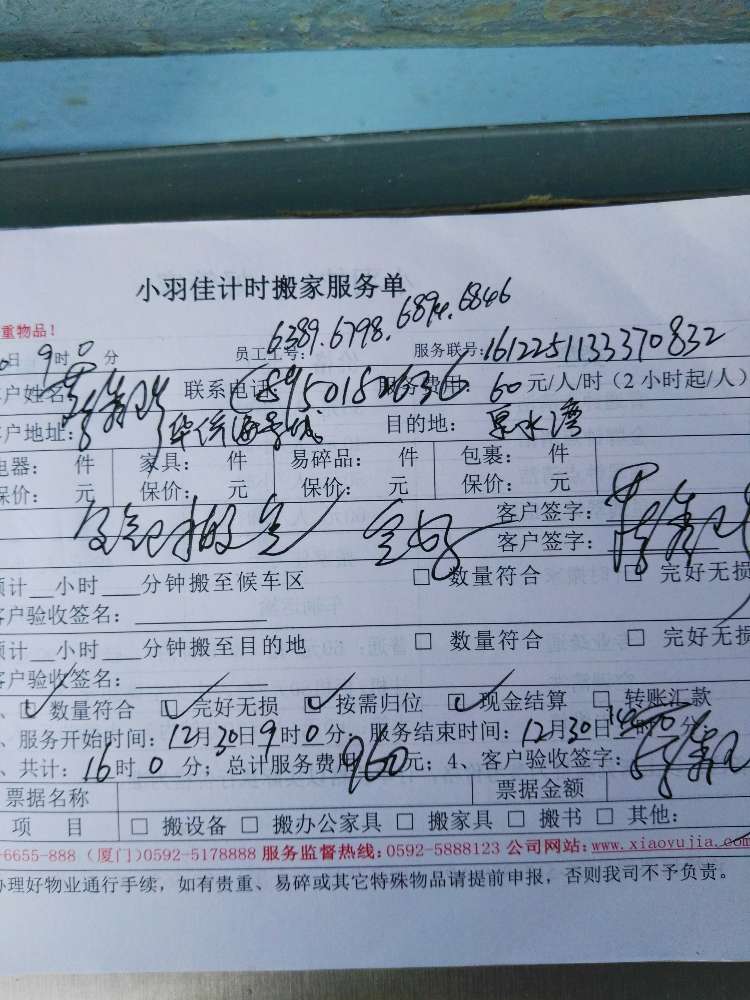 小羽佳计时搬家服务单
重物品！
6389.6798.6894.6846
日 9时0分 员工工号： 服务联号：1612251133370832
户姓名： 联系电话 服务费用：60元/人/时（2小时起/人）
户地址： 目的地： 泉水湾
电器： 件 家具： 件 易碎品： 件 包裹： 件
保价： 元 保价： 元 保价： 元 保价： 元
客户签字：
客户签字：
预计__小时____分钟搬至候车区 □ 数量符合 □ 完好无损
客户验收签名：
预计__小时____分钟搬至目的地 □ 数量符合 □ 完好无损
客户验收签名：
、☑ 数量符合 ☑ 完好无损 ☑ 按需归位 ☑ 现金结算 □ 转账汇款
、服务开始时间：12月30日9时0分；服务结束时间：12月30日 时 分
、共计：16时0分；总计服务费用960元；4、客户验收签字：
票据名称 票据金额
项 目 □ 搬设备 □ 搬办公家具 □ 搬家具 □ 搬书 □ 其他：
-6655-888（厦门）0592-5178888 服务监督热线：0592-5888123 公司网站：www.xiaoyujia.com
办理好物业通行手续，如有贵重、易碎或其它特殊物品请提前申报，否则我司不予负责。